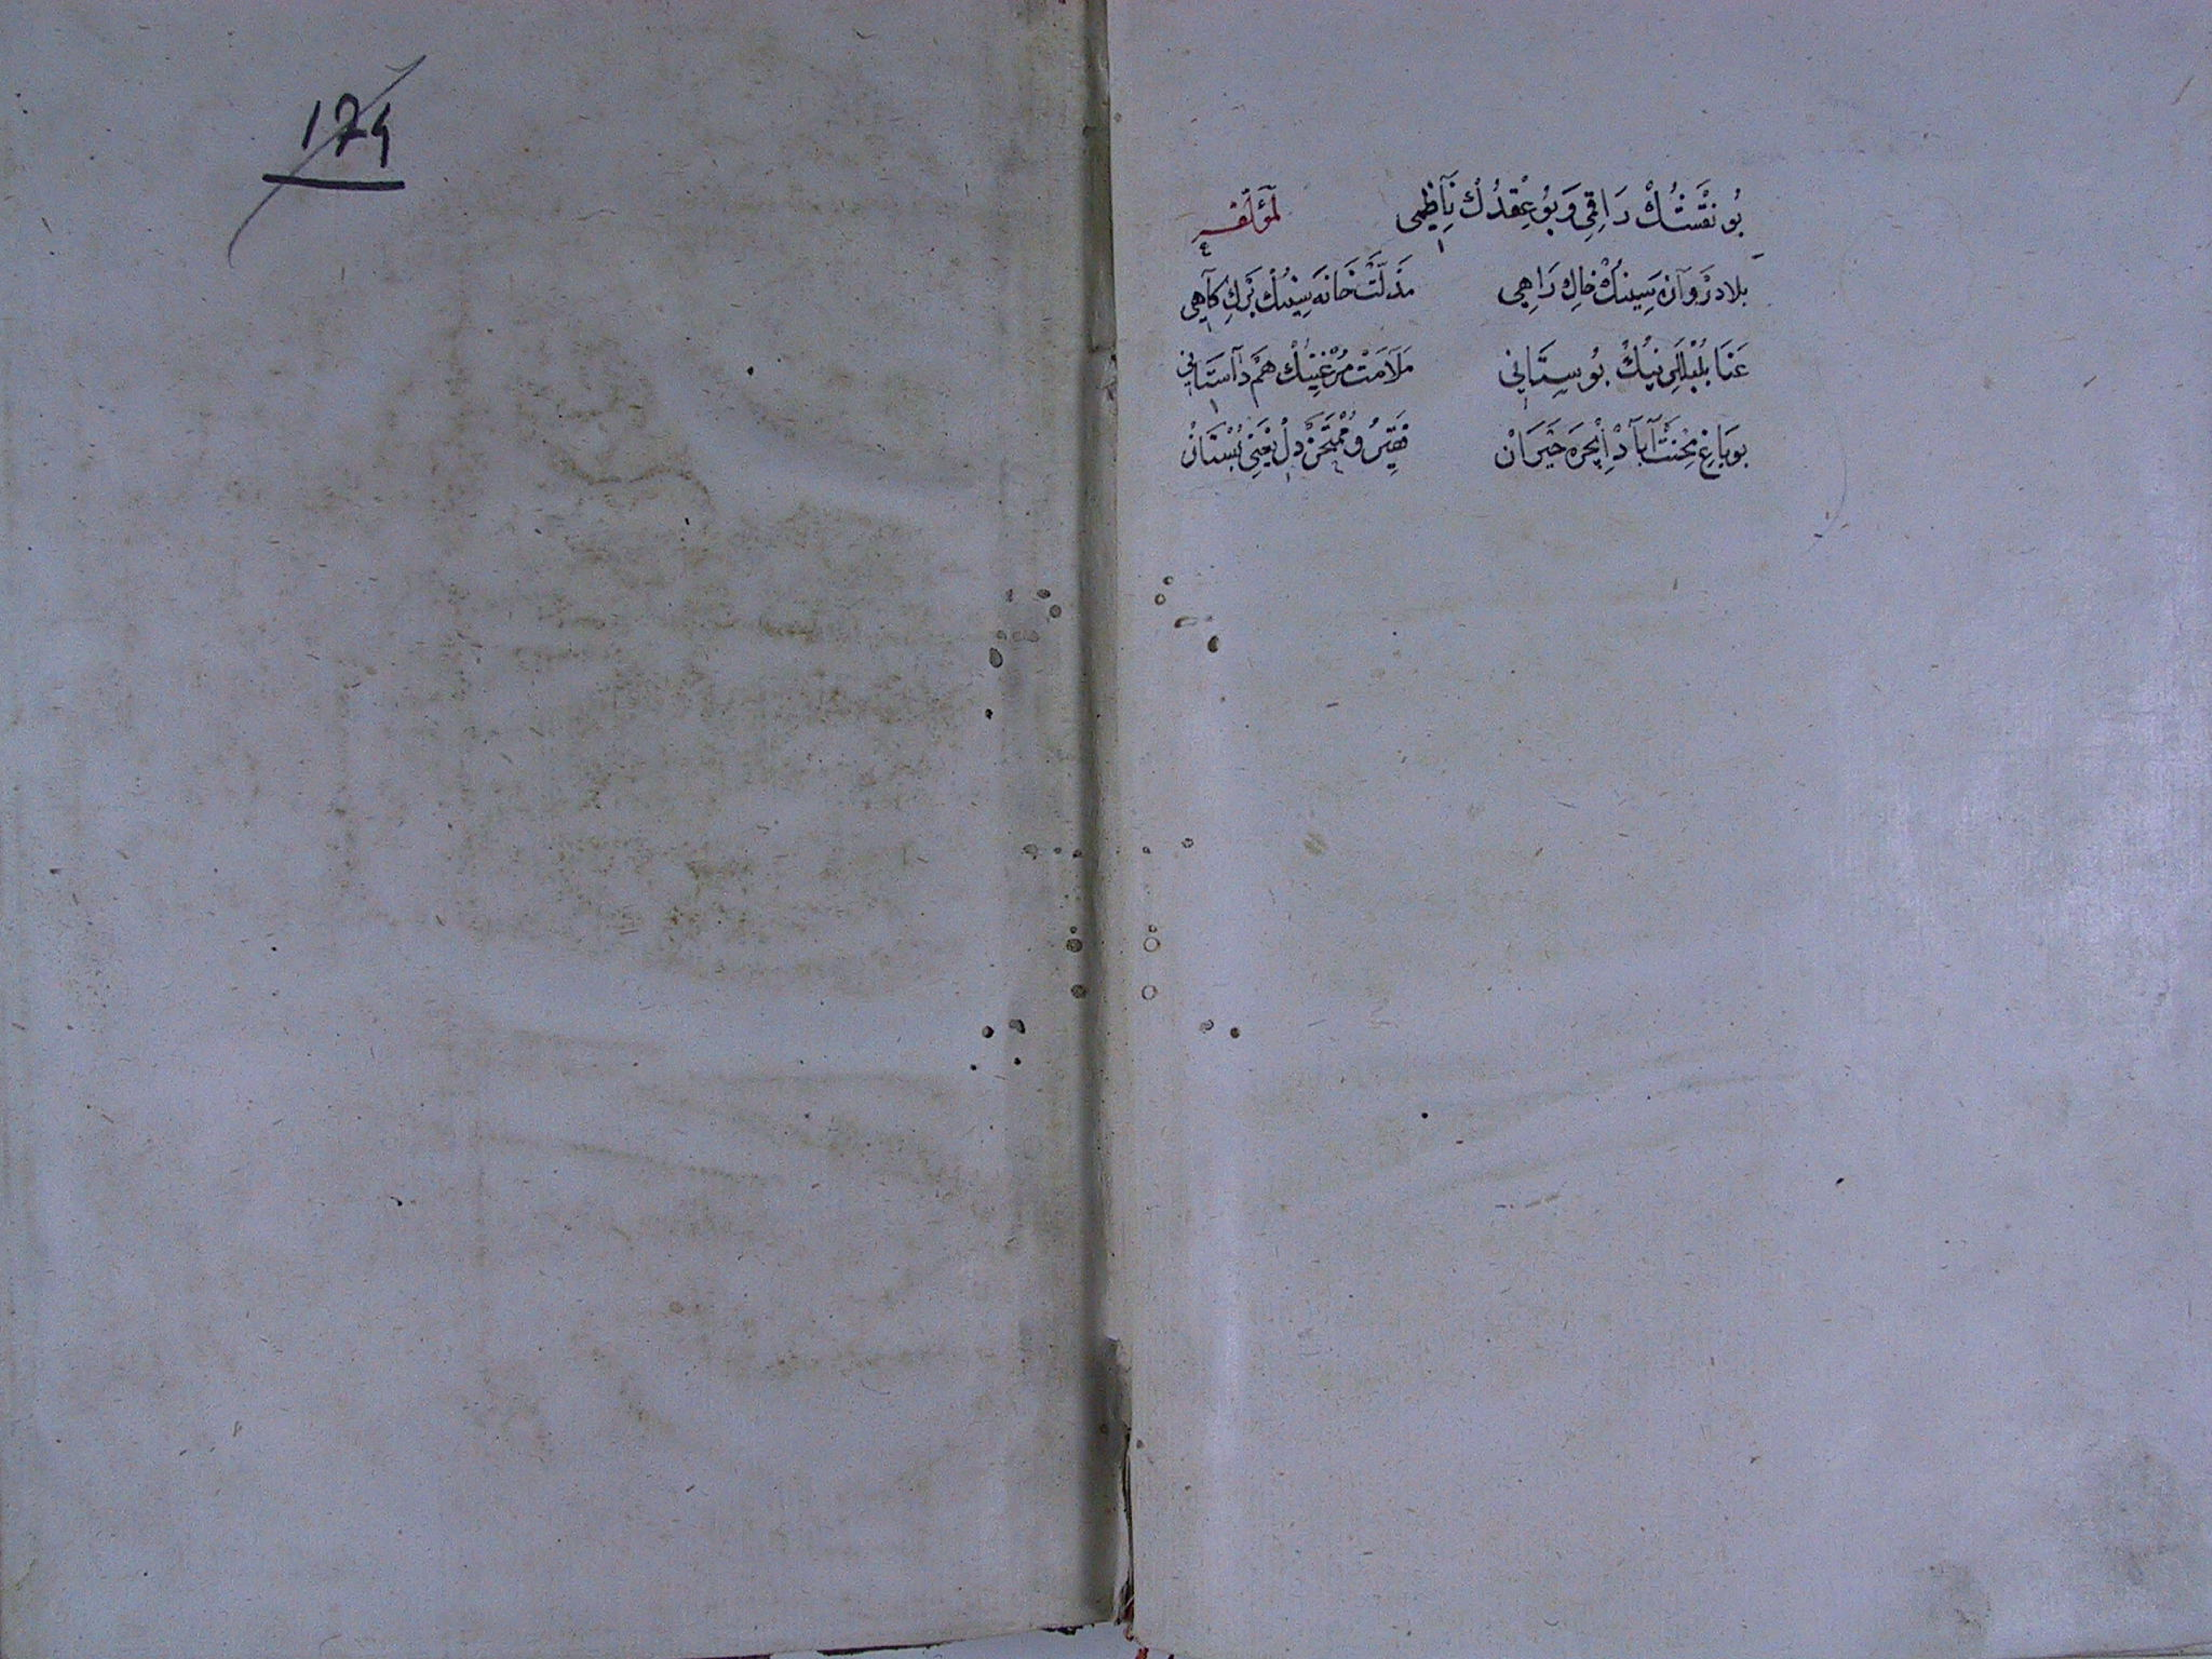 174
بُو نَقْشُكْ رَاقِمِى وَبُو عِقْدُكْ نَاظِمِى لِمُؤَلِّفِهِ
بلا دَرْوَازَه سِينُكْ خاكِ رَاهِى مَذَلَّتْ خَانَه سِينُكْ بَرْكِ كَاهِى
عَنَا بُلْبُللَرِينُكْ بُوسِتَانِى مَلَامَتْ مُرْغِينُكْ هَمْ دَاسْتَانِى
بو بَاغِ مِحْنَتْ آبَادْ اِيچْرَه حَيْرَانْ فَقِيرُ و مُمْتَحَنْ دِلْ يَعْنِى بُسْتَانْ